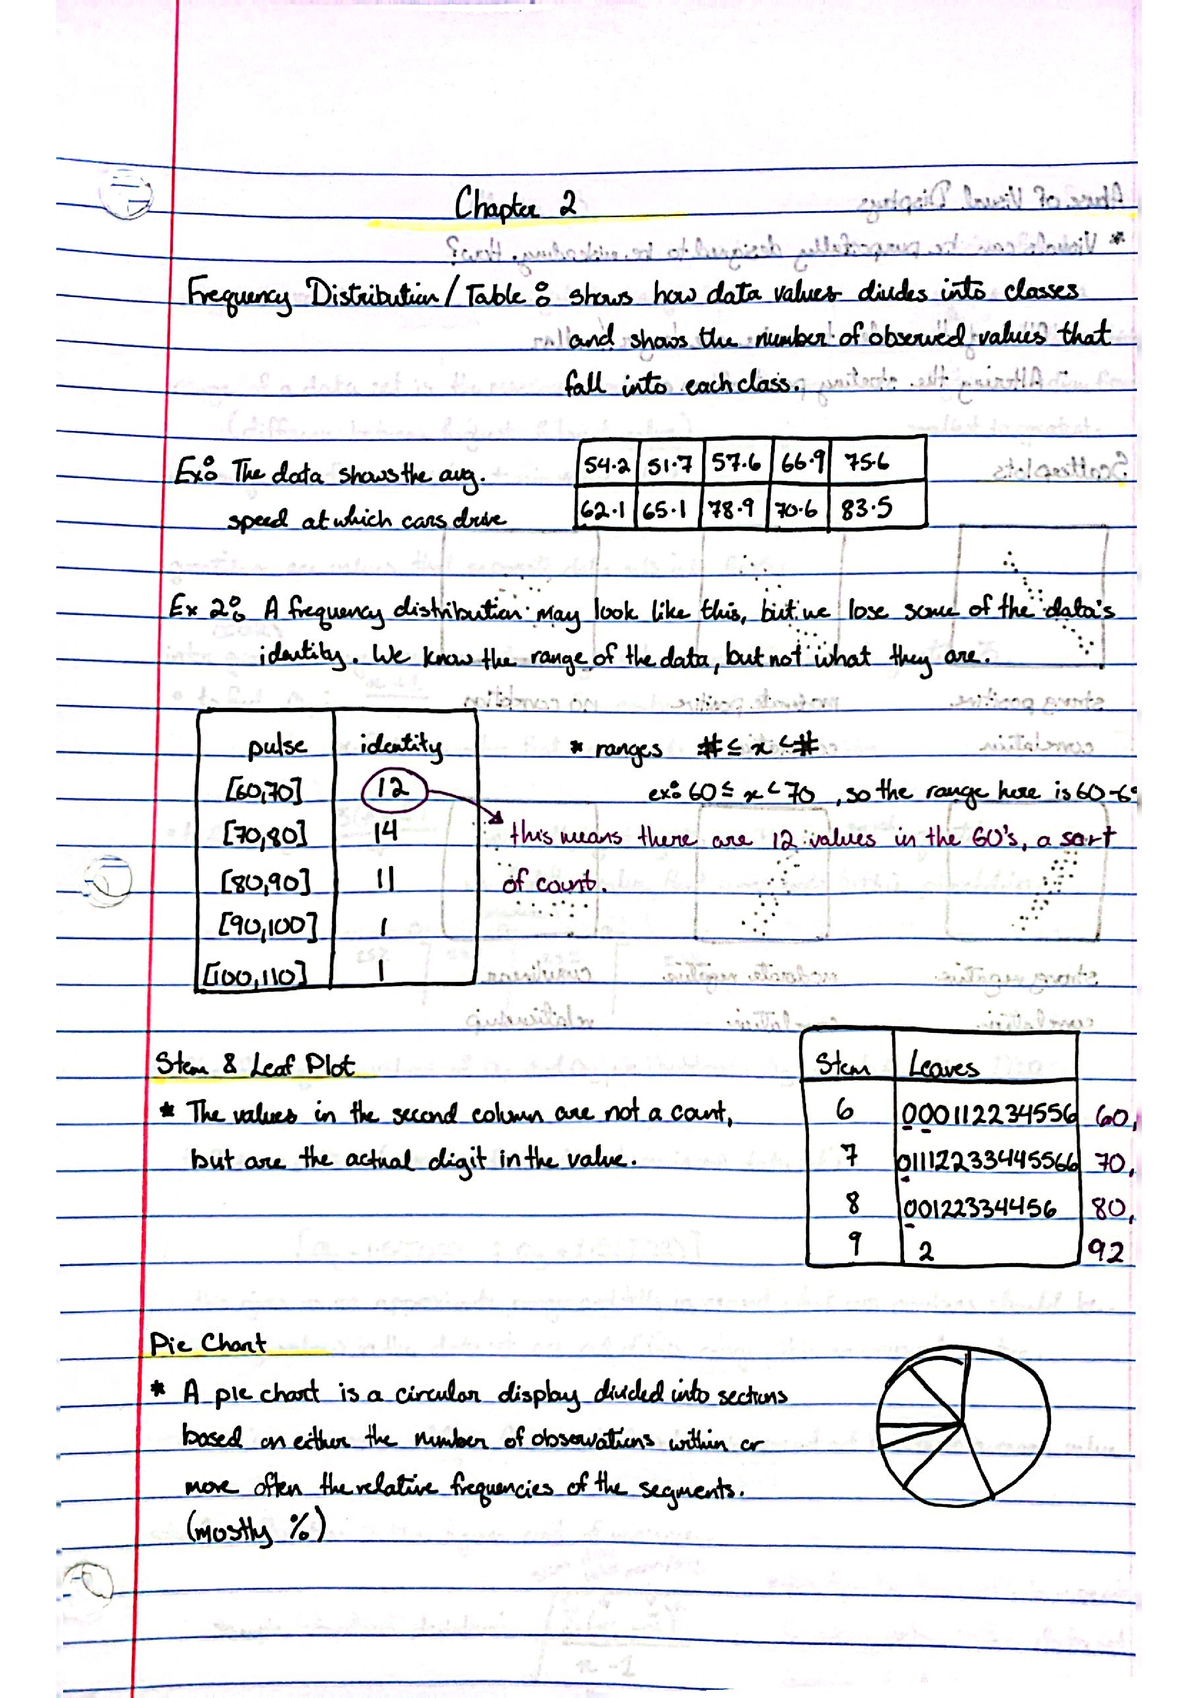 Chapter 2
Frequency Distribution / Table : shows how data values divides into classes
and shows the number of observed values that
fall into each class.
Ex: The data shows the avg.
speed at which cars drive
54.2 51.7 57.6 66.9 75.6
62.1 65.1 78.9 70.6 83.5
Ex 2: A frequency distribution may look like this, but we lose some of the data's
identity. We know the range of the data, but not what they are.
pulse identity
[60,70] 12
[70,80] 14
[80,90] 11
[90,100] 1
[100,110] 1
* ranges # ≤ x < #
ex: 60 ≤ x < 70 , so the range here is 60-69
this means there are 12 values in the 60's, a sort
of count.
Stem & Leaf Plot
* The values in the second column are not a count,
but are the actual digit in the value.
Stem Leaves
6 000112234556 60,
7 01112233445566 70,
8 00122334456 80,
9 2 92
Pie Chart
* A pie chart is a circular display divided into sections
based on either the number of observations within or
more often the relative frequencies of the segments.
(mostly %)